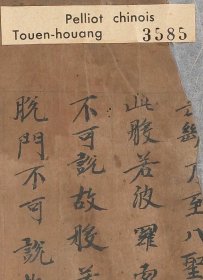 Pelliot chinois
Touen-houang 3585
乃至八聖
此般若波羅
不可說故般若
脫門不可說